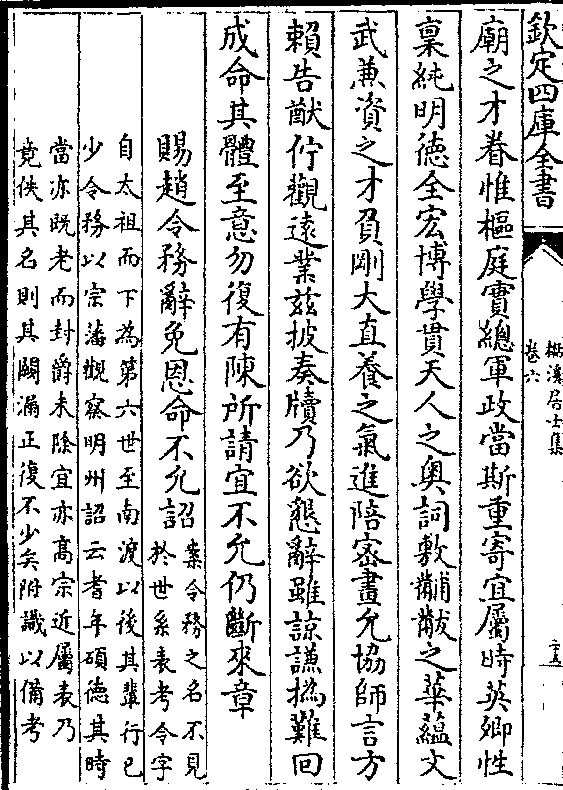 欽定四庫全書
栟溪居士集
卷六
廟之才眷惟樞庭實總軍政當斯重寄宜屬時英卿性
稟純明德全宏博學貫天人之奥詞敷黼黻之華藴文
武兼資之才負剛大直養之氣進陪宻畫允協師言方
賴告猷佇觀遠業兹披奏牘乃欲懇辭雖諒謙撝難回
成命其體至意勿復有陳所請宜不允仍斷來章
賜趙令務辭免恩命不允詔
案令務之名不見
於世系表考令字
自太祖而下為第六世至南渡以後其輩行已
少令務以宗藩觀察明州詔云耆年碩德其時
當亦既老而封爵未除宜亦髙宗近屬表乃
竟佚其名則其闕漏正復不少矣附識以備考